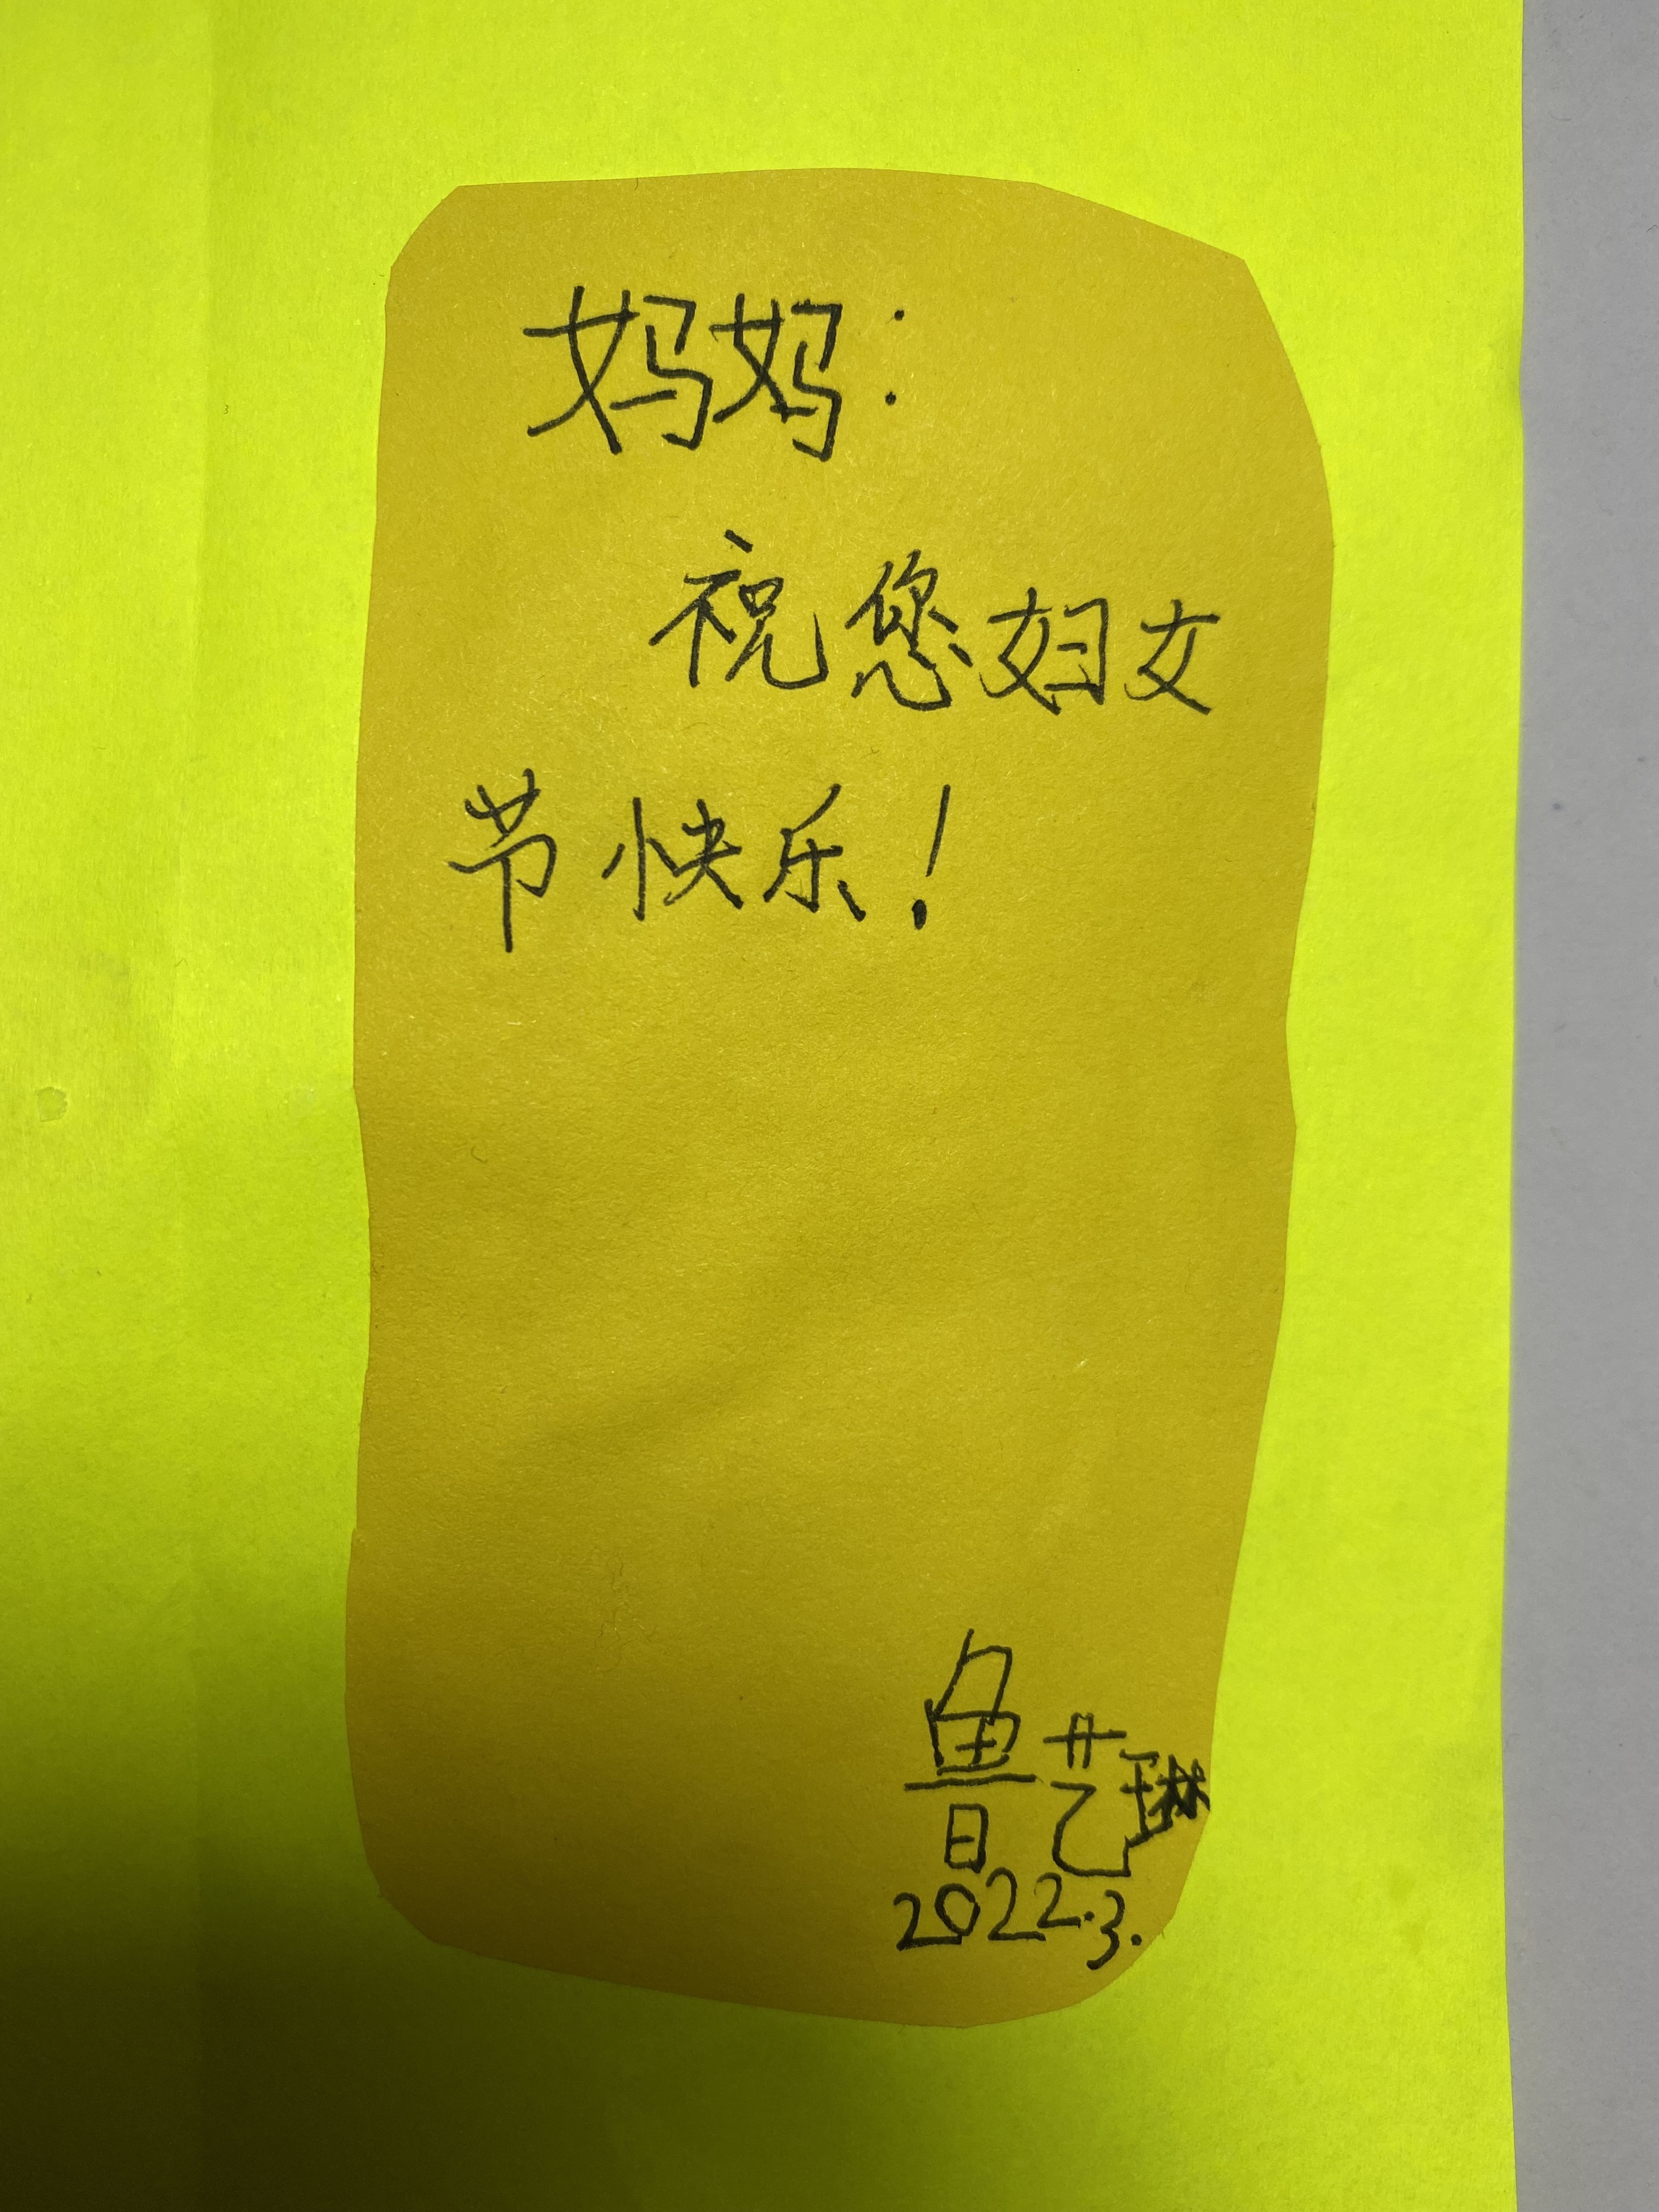 妈妈:
祝您妇女
节快乐!
鲁艺琳
2022.3.